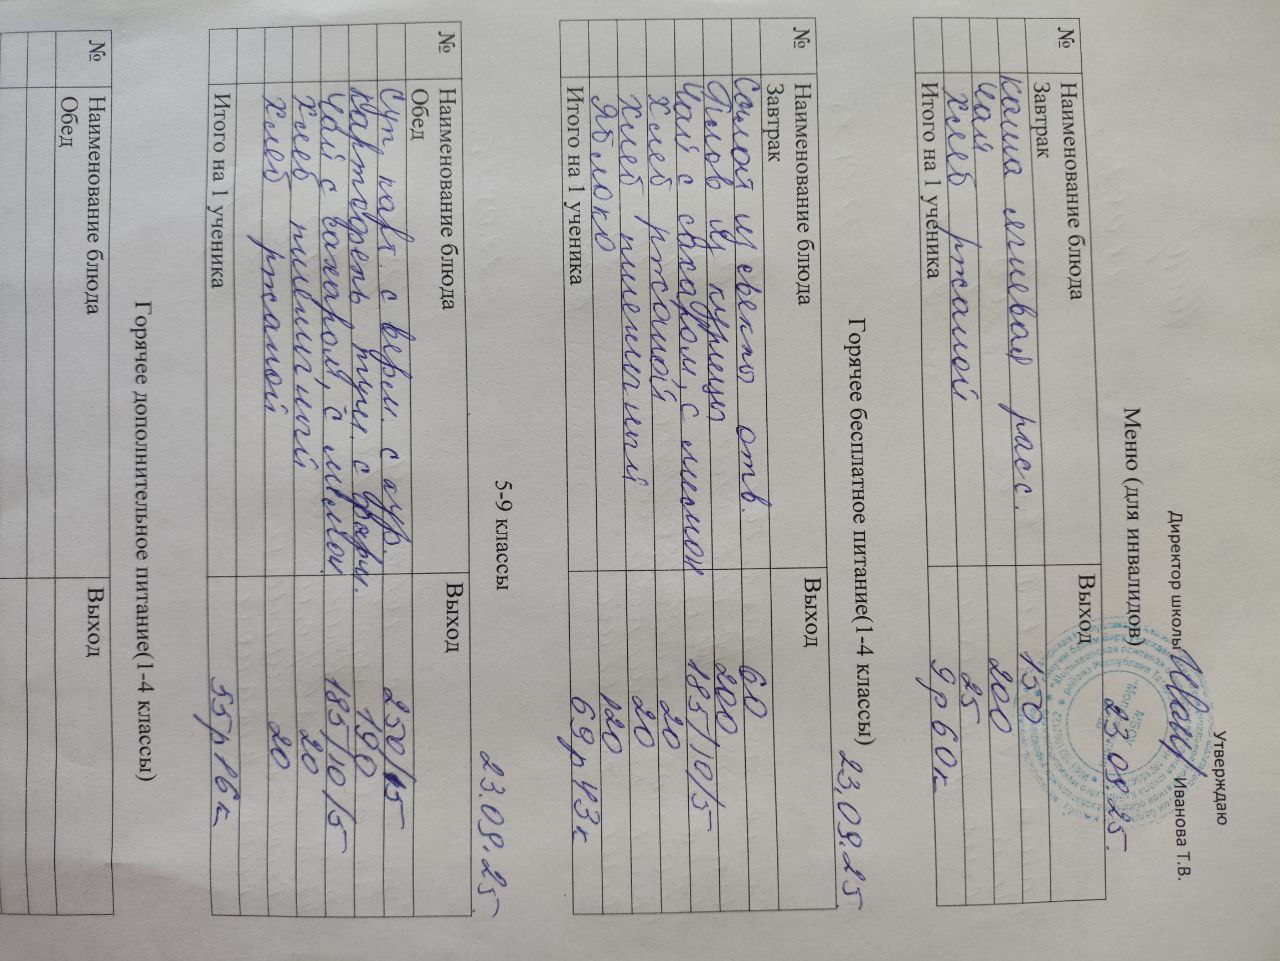 Утверждаю
Директор школы Иванова Т.В.
23.09.25.
Меню (для инвалидов)
№ Наименование блюда Выход
Завтрак
каша ячневая расс. 150
чай 200
хлеб ржаной 25
Итого на 1 ученика 9р 60к
Горячее бесплатное питание(1-4 классы) 23.09.25
№ Наименование блюда Выход
Завтрак
Салат из свеклы отв. 60
Плов из курицы 200
Чай с сахаром, с лимон 185/10/5
хлеб ржаной 20
хлеб пшеничный 20
Яблоко 120
Итого на 1 ученика 69р 43к
5-9 классы 23.09.25.
№ Наименование блюда Выход
Обед
Суп карт. с верм. с кур. 250/15
Картофель туш. с фарш. 190
Чай с сахаром, с лимон. 185/10/5
хлеб пшеничный 20
хлеб ржаной 20
Итого на 1 ученика 55р 16к
Горячее дополнительное питание(1-4 классы)
№ Наименование блюда Выход
Обед